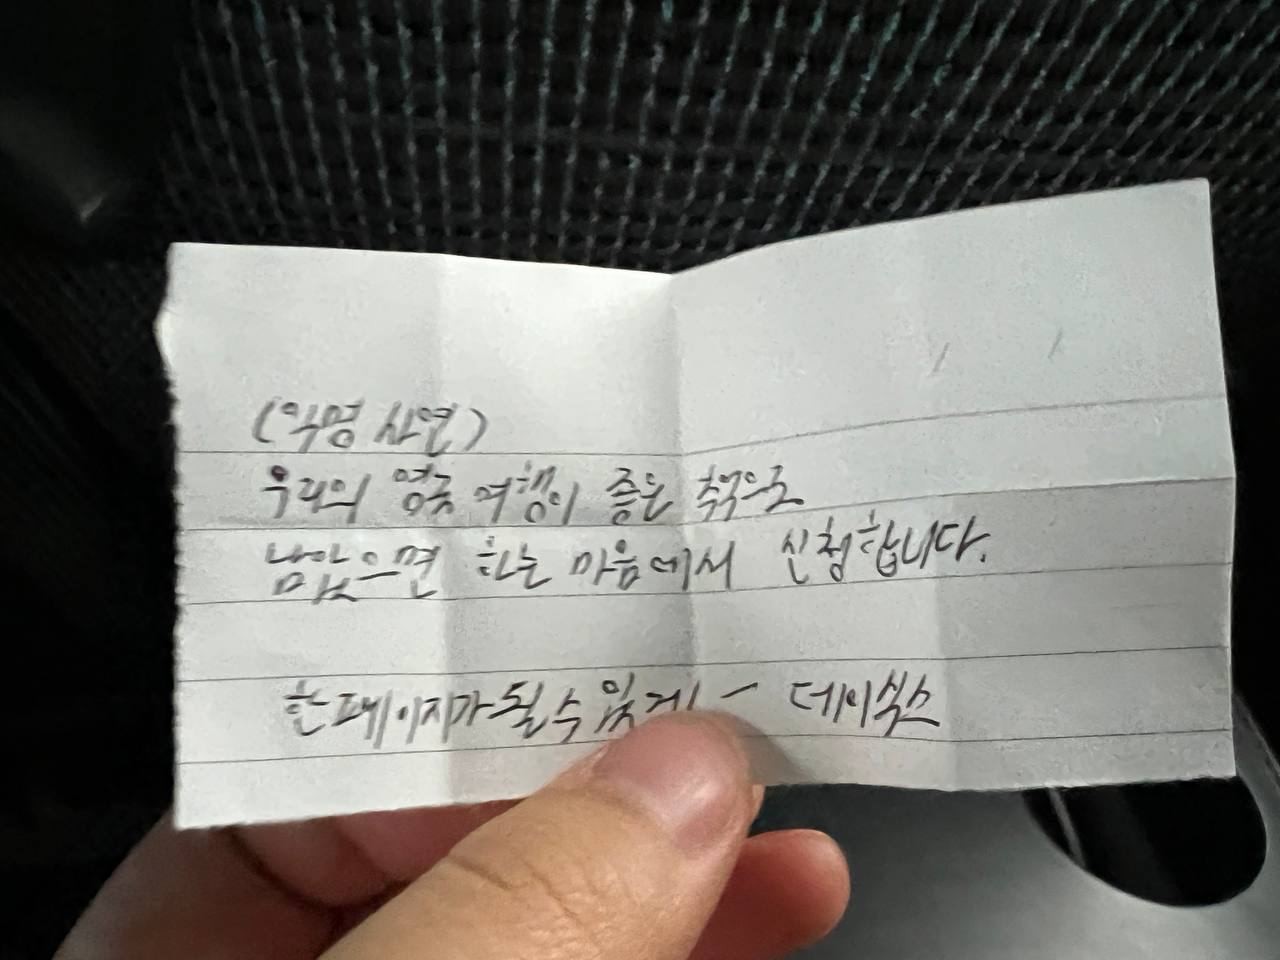 (익명 사연)
우리의 영국 여행이 좋은 추억으로
남았으면 하는 마음에서 신청합니다.
한페이지가될수있게 - 데이식스